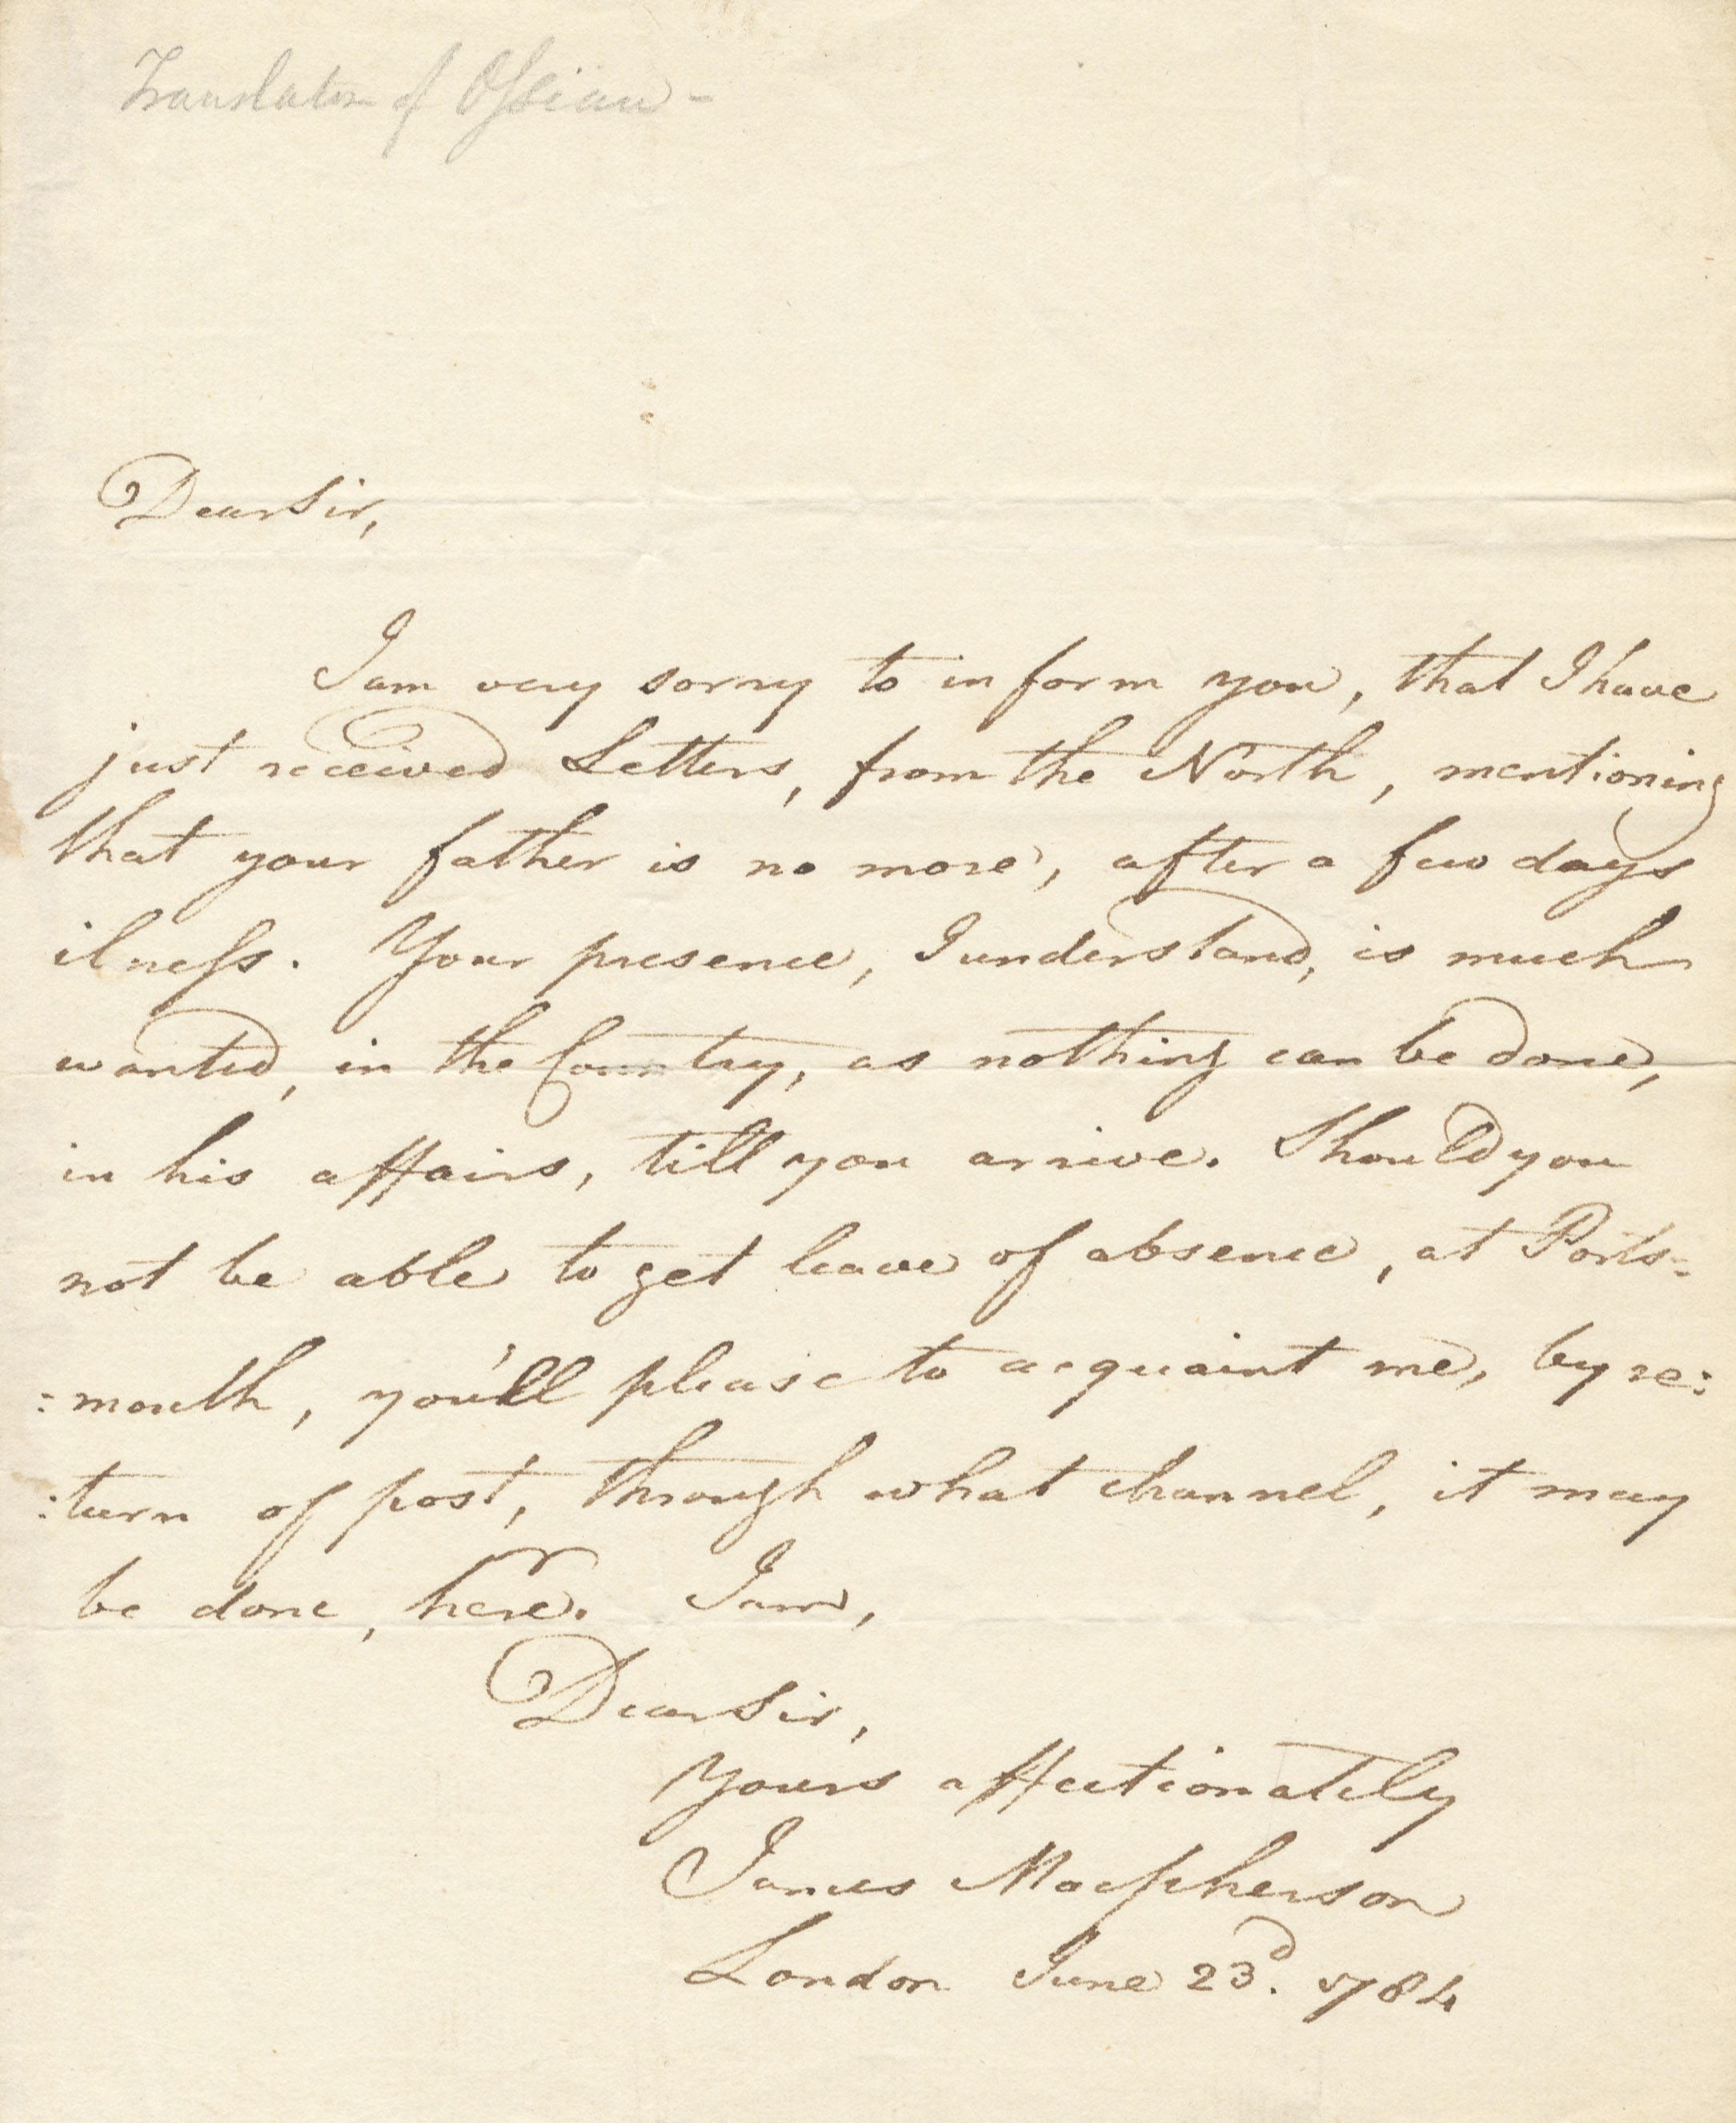 Translator of Ossian -
Dear Sir,
I am very sorry to inform you, that I have
just received Letters, from the North, mentioning
that your father is no more, after a few days
ilness. Your presence, I understand, is much
wanted, in the Country, as nothing can be done,
in his affairs, till you arrive. Should you
not be able to get leave of absence, at Ports=
:mouth, you'll please to acquaint me, by re:
:turn of post, through what channel, it may
be done, here. I am,
Dear Sir,
Yours affectionately
James Macpherson
London June 23d. 1784